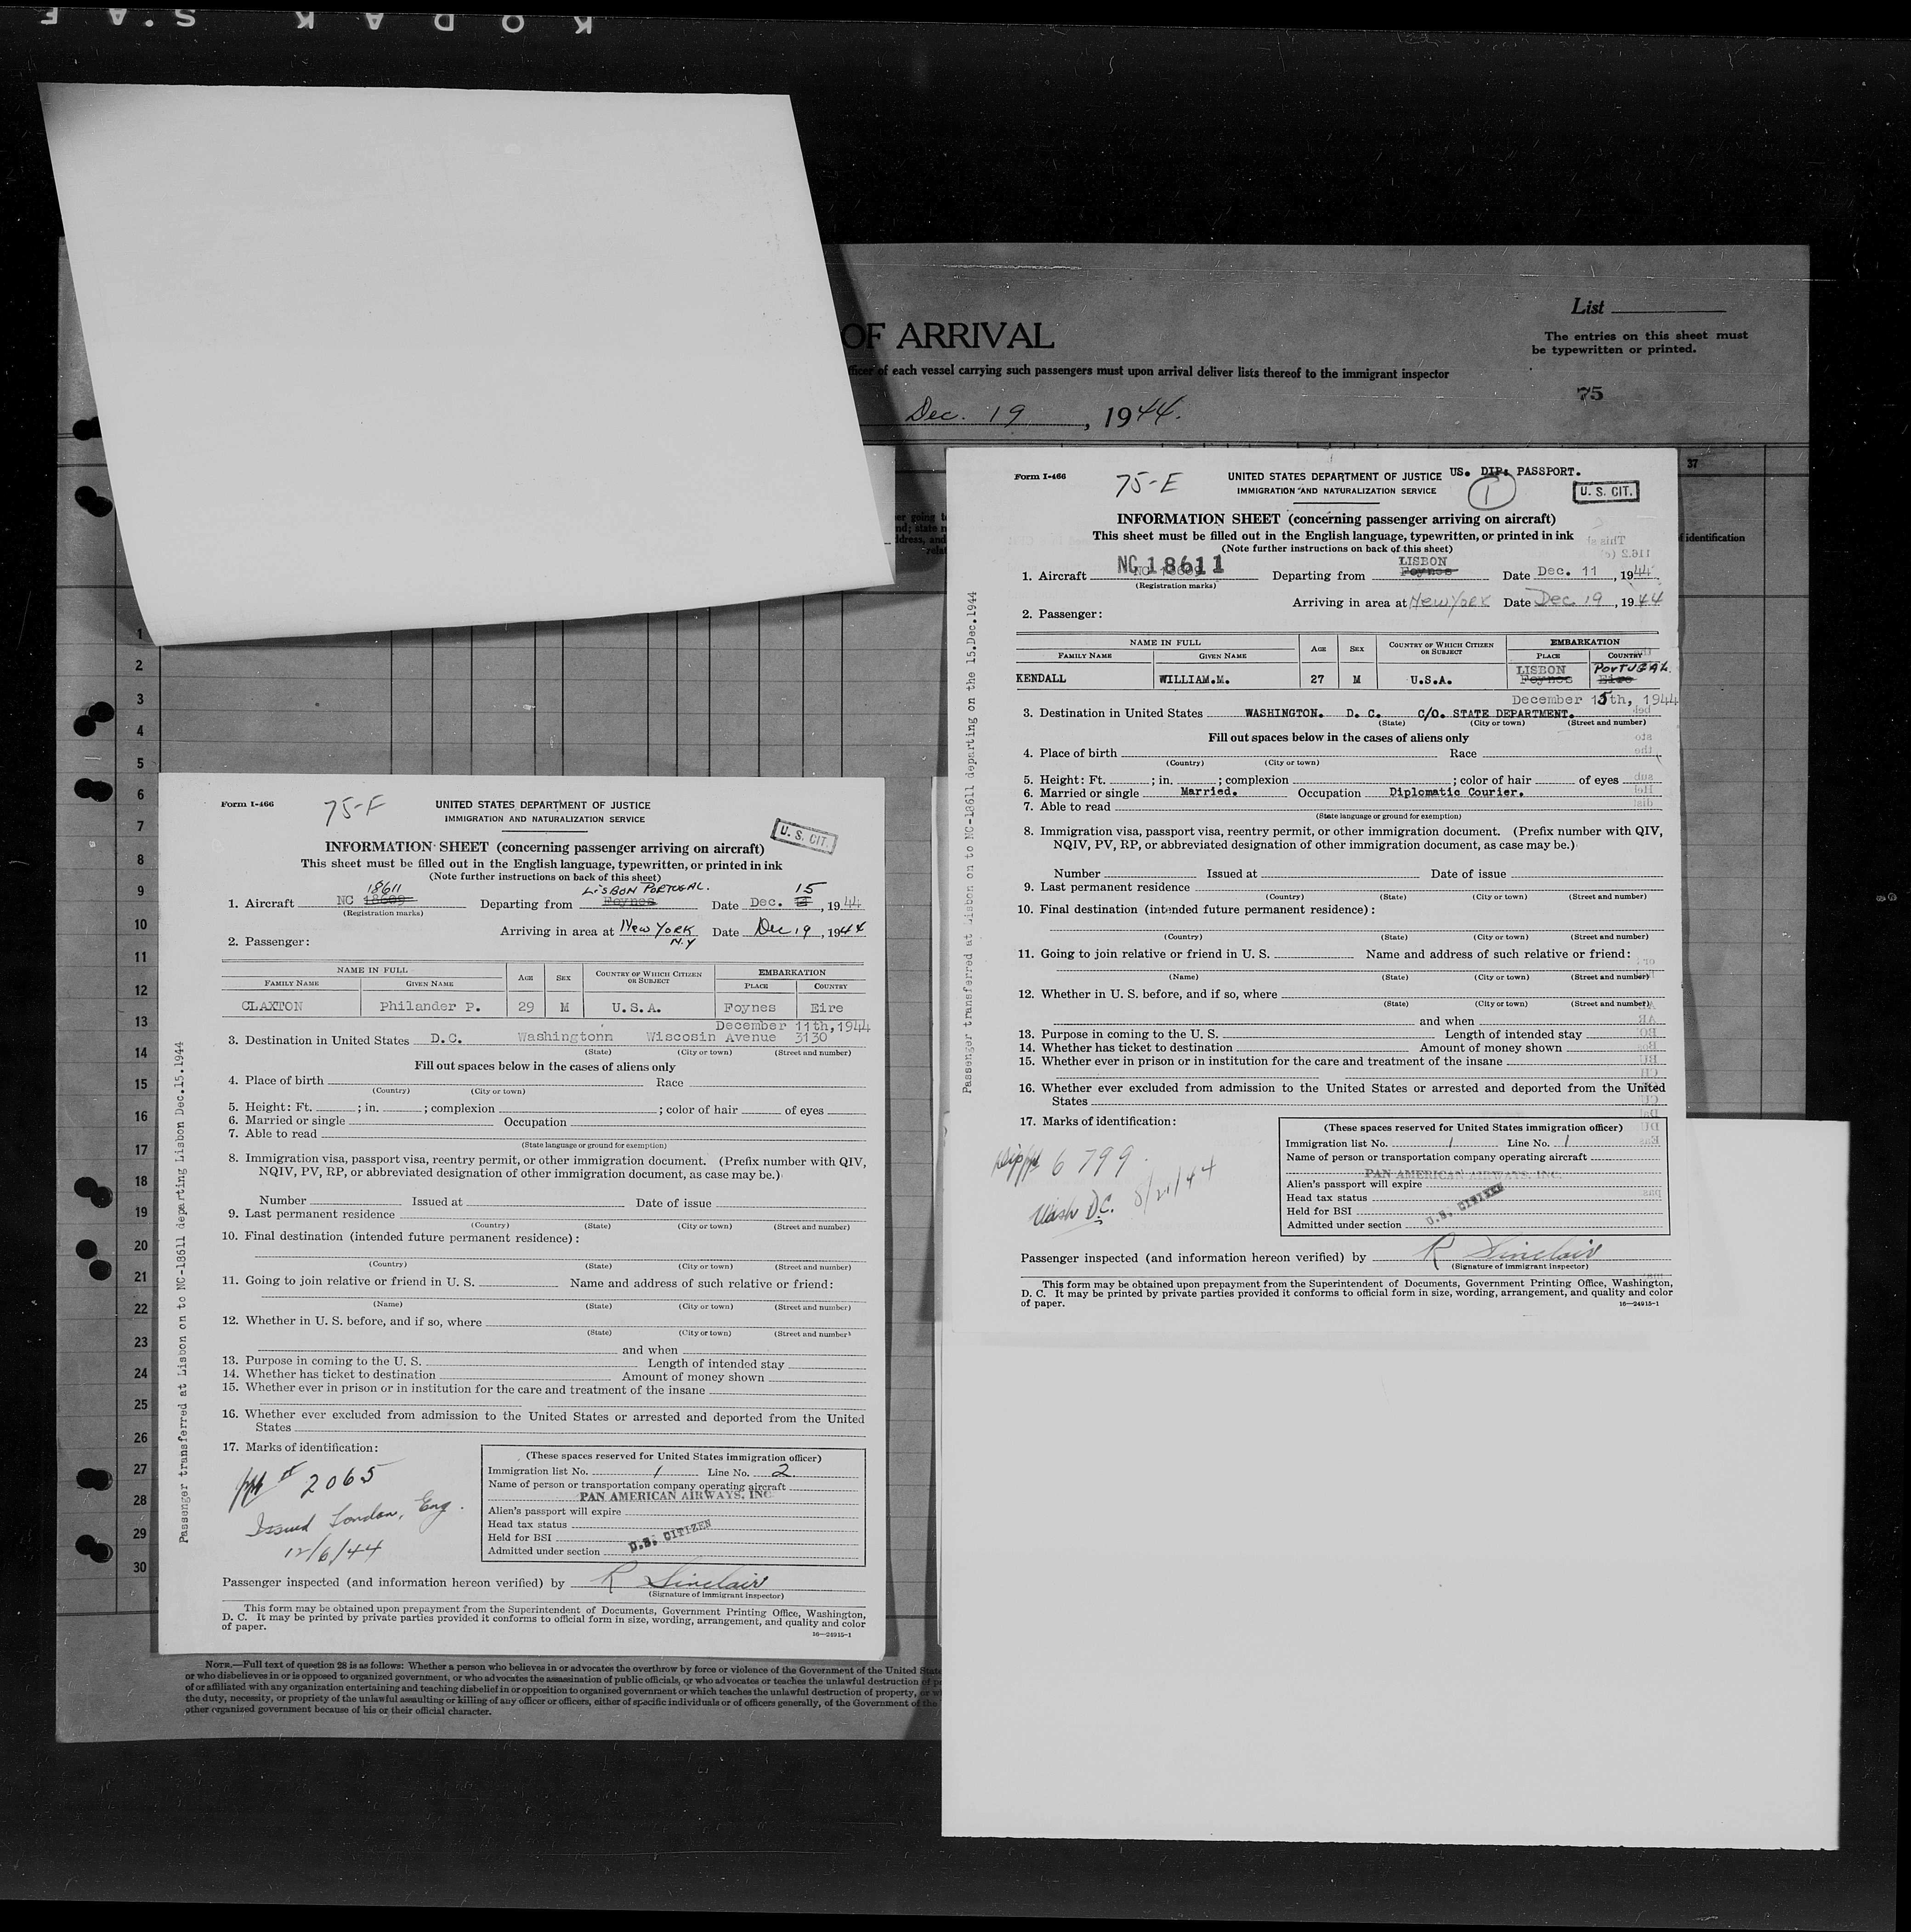 KODAK S.A F
OF ARRIVAL
List
The entries on this sheet must
be typewritten or printed.
of each vessel carrying such passengers must upon arrival deliver lists thereof to the immigrant inspector
75
Dec. 19, 1944.
37
of identification
1
2
3
4
5
6
7
8
9
10
11
12
13
14
15
16
17
18
19
20
21
22
23
24
25
26
27
28
29
30
Form I-466
75-F
UNITED STATES DEPARTMENT OF JUSTICE
IMMIGRATION AND NATURALIZATION SERVICE
U. S. CIT.
INFORMATION SHEET (concerning passenger arriving on aircraft)
This sheet must be filled out in the English language, typewritten, or printed in ink
(Note further instructions on back of this sheet)
18611 LISBON PORTUGAL. 15
1. Aircraft NC 18609 Departing from Foynes Date Dec. , 1944
(Registration marks)
Arriving in area at New York N.Y Date Dec 19, 1944
2. Passenger:
NAME IN FULL AGE SEX COUNTRY OF WHICH CITIZEN OR SUBJECT EMBARKATION
FAMILY NAME GIVEN NAME PLACE COUNTRY
CLAXTON Philander P. 29 M U.S.A. Foynes Eire
December 11th, 1944
3. Destination in United States D.C. Washingtonn Wiscosin Avenue 3130
(State) (City or town) (Street and number)
Fill out spaces below in the cases of aliens only
4. Place of birth Race
(Country) (City or town)
5. Height: Ft. ; in. ; complexion ; color of hair of eyes
6. Married or single Occupation
7. Able to read
(State language or ground for exemption)
8. Immigration visa, passport visa, reentry permit, or other immigration document. (Prefix number with QIV,
NQIV, PV, RP, or abbreviated designation of other immigration document, as case may be.)
Number Issued at Date of issue
9. Last permanent residence
(Country) (State) (City or town) (Street and number)
10. Final destination (intended future permanent residence):
(Country) (State) (City or town) (Street and number)
11. Going to join relative or friend in U. S. Name and address of such relative or friend:
(Name) (State) (City or town) (Street and number)
12. Whether in U. S. before, and if so, where
(State) (City or town) (Street and number)
and when
13. Purpose in coming to the U. S. Length of intended stay
14. Whether has ticket to destination Amount of money shown
15. Whether ever in prison or in institution for the care and treatment of the insane
16. Whether ever excluded from admission to the United States or arrested and deported from the United
States
17. Marks of identification:
ppt # 2065
Issued London, Eng.
12/6/44
(These spaces reserved for United States immigration officer)
Immigration list No. 1 Line No. 2
Name of person or transportation company operating aircraft
PAN AMERICAN AIRWAYS, INC.
Alien's passport will expire
Head tax status
Held for BSI
Admitted under section
U.S. CITIZEN
Passenger inspected (and information hereon verified) by R Sinclair
(Signature of immigrant inspector)
This form may be obtained upon prepayment from the Superintendent of Documents, Government Printing Office, Washington,
D. C. It may be printed by private parties provided it conforms to official form in size, wording, arrangement, and quality and color
of paper.
16—24915-1
Passenger transferred at Lisbon on to NC-18611 departing Lisbon Dec.15.1944
Form I-466
75-E
UNITED STATES DEPARTMENT OF JUSTICE
US. DIP: PASSPORT.
IMMIGRATION AND NATURALIZATION SERVICE
1
U. S. CIT.
INFORMATION SHEET (concerning passenger arriving on aircraft)
This sheet must be filled out in the English language, typewritten, or printed in ink
(Note further instructions on back of this sheet)
NC 18611 LISBON
1. Aircraft NC 18609 Departing from Foynes Date Dec. 11, 1944
(Registration marks)
Arriving in area at New York Date Dec. 19, 1944
2. Passenger:
NAME IN FULL AGE SEX COUNTRY OF WHICH CITIZEN OR SUBJECT EMBARKATION
FAMILY NAME GIVEN NAME PLACE COUNTRY
LISBON PORTUGAL
KENDALL WILLIAM.M. 27 M U.S.A. Foynes Eire
December 15th, 1944
3. Destination in United States WASHINGTON. D. C. C/O. STATE DEPARTMENT.
(State) (City or town) (Street and number)
Fill out spaces below in the cases of aliens only
4. Place of birth Race
(Country) (City or town)
5. Height: Ft. ; in. ; complexion ; color of hair of eyes
6. Married or single Married. Occupation Diplomatic Courier.
7. Able to read
(State language or ground for exemption)
8. Immigration visa, passport visa, reentry permit, or other immigration document. (Prefix number with QIV,
NQIV, PV, RP, or abbreviated designation of other immigration document, as case may be.)
Number Issued at Date of issue
9. Last permanent residence
(Country) (State) (City or town) (Street and number)
10. Final destination (intended future permanent residence):
(Country) (State) (City or town) (Street and number)
11. Going to join relative or friend in U. S. Name and address of such relative or friend:
(Name) (State) (City or town) (Street and number)
12. Whether in U. S. before, and if so, where
(State) (City or town) (Street and number)
and when
13. Purpose in coming to the U. S. Length of intended stay
14. Whether has ticket to destination Amount of money shown
15. Whether ever in prison or in institution for the care and treatment of the insane
16. Whether ever excluded from admission to the United States or arrested and deported from the United
States
17. Marks of identification:
6799
Wash D.C. 8/21/44
(These spaces reserved for United States immigration officer)
Immigration list No. 1 Line No. 1
Name of person or transportation company operating aircraft
PAN AMERICAN AIRWAYS, INC.
Alien's passport will expire
Head tax status
Held for BSI
Admitted under section
U.S. CITIZEN
Passenger inspected (and information hereon verified) by R Sinclair
(Signature of immigrant inspector)
This form may be obtained upon prepayment from the Superintendent of Documents, Government Printing Office, Washington,
D. C. It may be printed by private parties provided it conforms to official form in size, wording, arrangement, and quality and color
of paper.
16—24915-1
Passenger transferred at Lisbon on to NC-18611 departing on the 15.Dec.1944
NOTE.—Full text of question 28 is as follows: Whether a person who believes in or advocates the overthrow by force or violence of the Government of the United State
or who disbelieves in or is opposed to organized government, or who advocates the assassination of public officials, or who advocates or teaches the unlawful destruction of
of or affiliated with any organization entertaining and teaching disbelief in or opposition to organized government or which teaches the unlawful destruction of property, or
the duty, necessity, or propriety of the unlawful assaulting or killing of any officer or officers, either of specific individuals or of officers generally, of the Government of the
other organized government because of his or their official character.